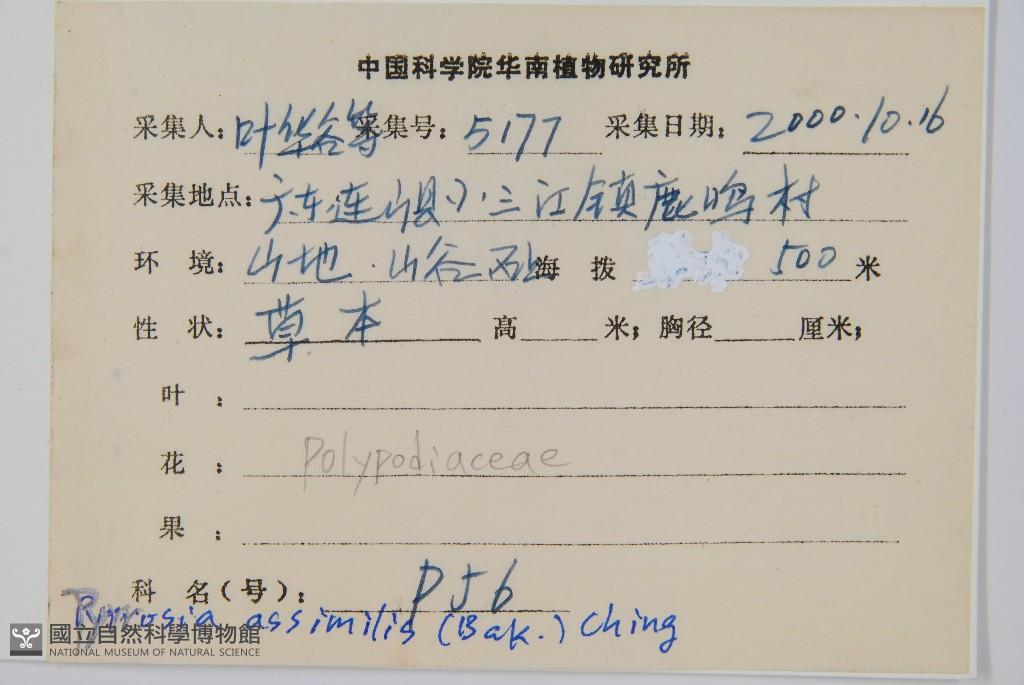 中国科学院华南植物研究所
采集人：叶华谷等 采集号：5177 采集日期：2000.10.16
采集地点：广东连山县小三江镇鹿鸣村
环 境：山地.山谷 海 拨 500 米
性 状：草本 高 米；胸径 厘米；
叶 ：
花 ： Polypodiaceae
果 ：
科 名（号）： P56
Pyrrosia assimilis (Bak.) Ching
國立自然科學博物館
NATIONAL MUSEUM OF NATURAL SCIENCE